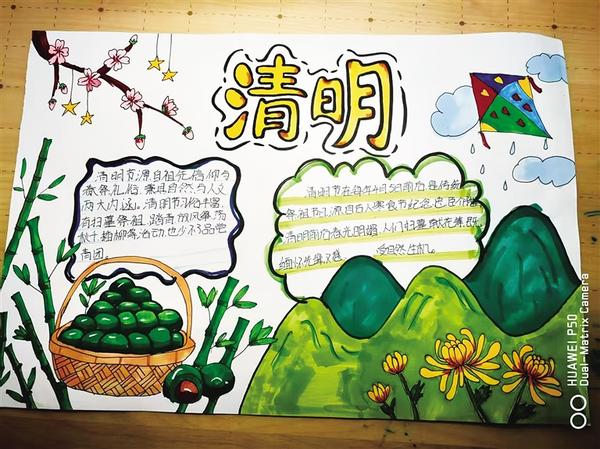 清明
清明节源自祖先信仰与
春祭礼俗,兼具自然与人文
两大内涵。清明节习俗丰富,
有扫墓祭祖、踏青、放风筝、荡
秋千、插柳等活动,也少不了品尝
青团。
清明节在每年4月5日前后,是传统
祭祖节日,源自古人寒食节纪念
清明前后春光明媚,人们扫墓献花
缅怀先辈 受自然生机。
HUAWEI P50
Dual-Matrix Camera